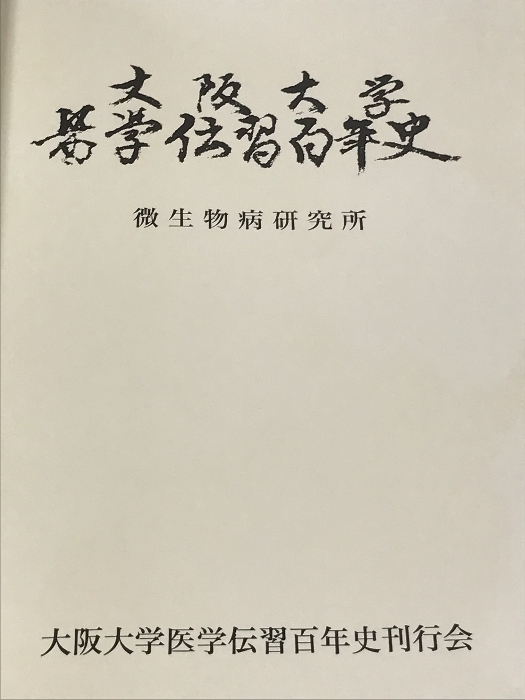 大阪大学
医学伝習百年史
微生物病研究所
大阪大学医学伝習百年史刊行会